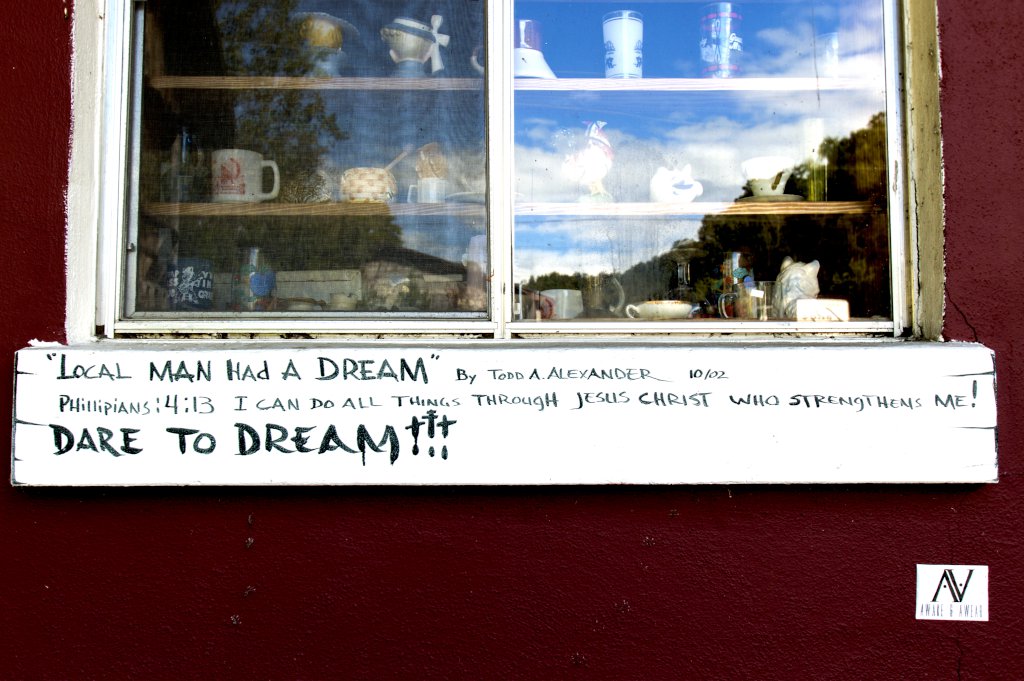 "LOCAL MAN HAD A DREAM" By TODD A. ALEXANDER 10/02
PHILLIPIANS: 4:13 I CAN DO ALL THINGS THROUGH JESUS CHRIST WHO STRENGTHENS ME!
DARE TO DREAM!!!
AV
AWAKE & AWEAR